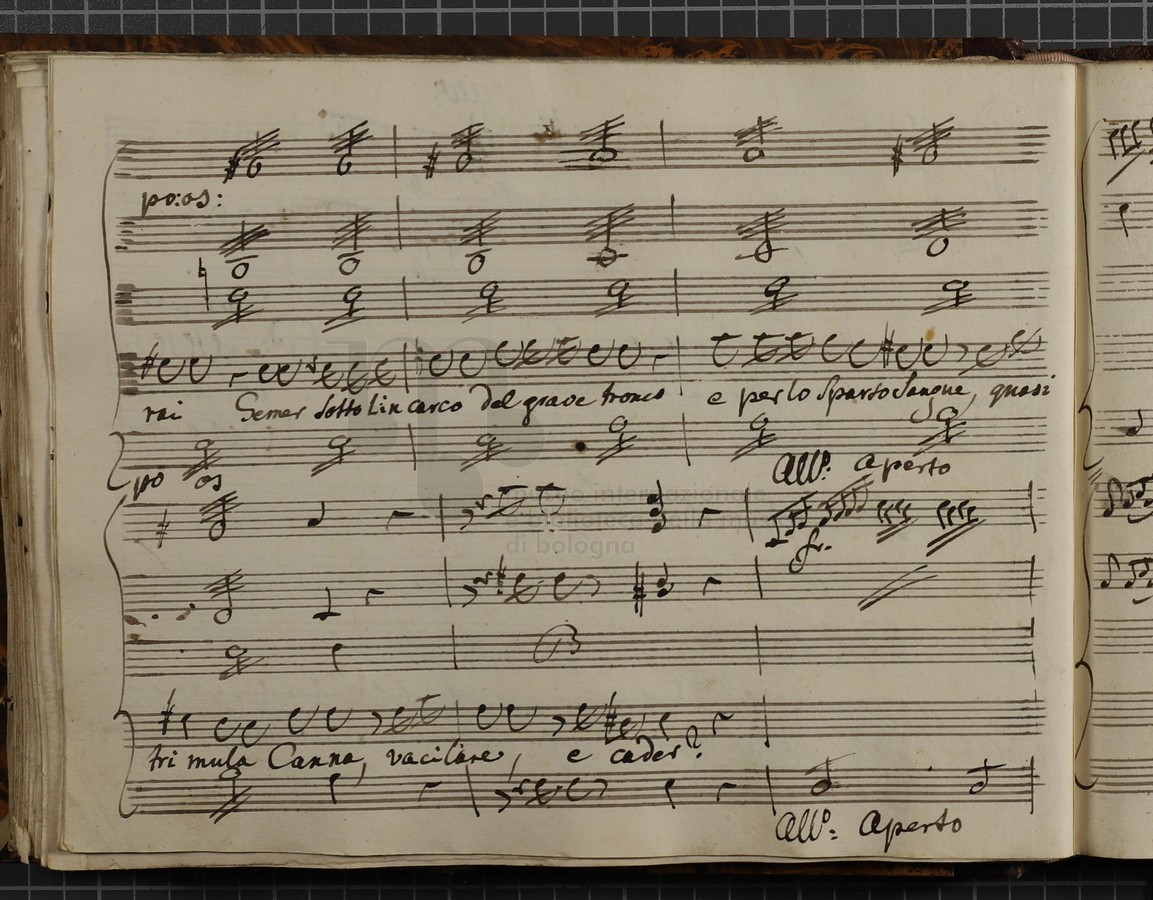 po: os:
rai Gemer sotto l'incarco del grave tronco e per lo sparso sangue, quasi
po os All.o Aperto
museo internazionale
e biblioteca della musica
di bologna
f.
tri mula Canna, vacilare, e cader?
All.o: Aperto